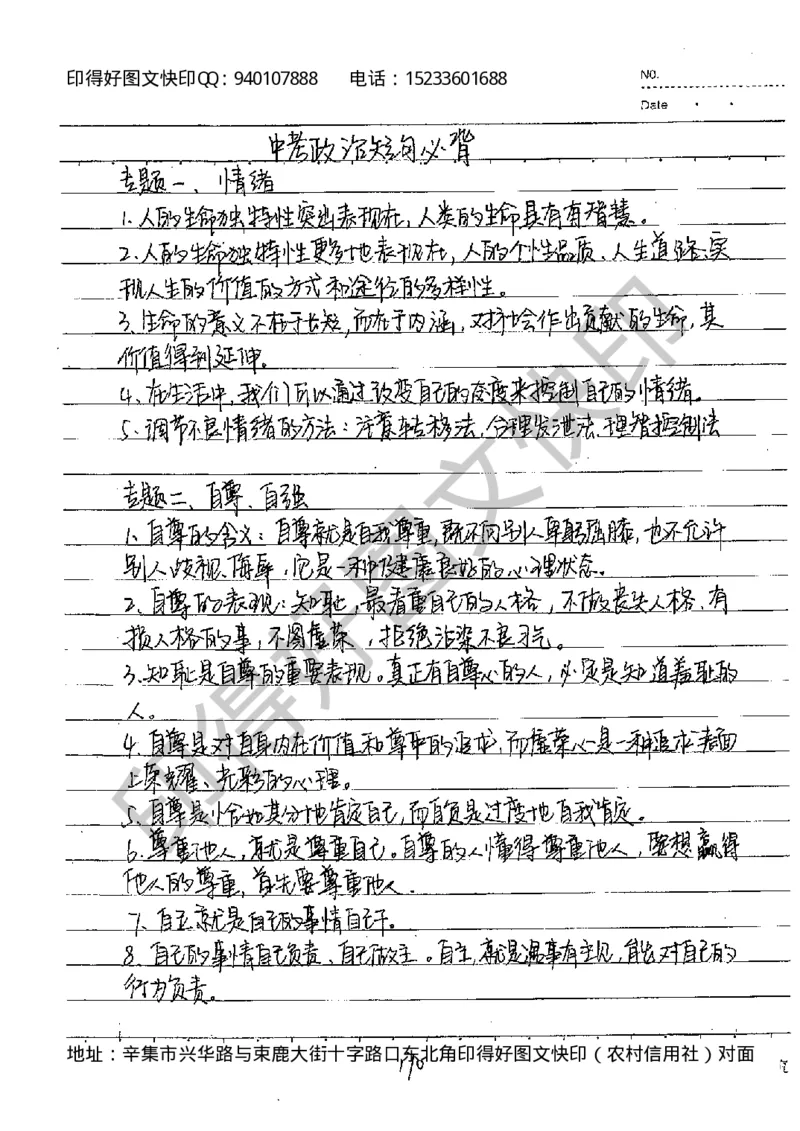 印得好图文快印QQ：940107888 电话：15233601688
NO.
Date
中考政治短句必背
专题一、情绪
1.人的生命独特性突出表现在，人类的生命具有有智慧。
2.人的生命独特性更多地表现在，人的个性品质、人生道路、实
现人生的价值的方式和途径的多样性。
3.生命的意义不在于长短，而在于内涵，对社会作出贡献的生命，其
价值得到延伸。
4.在生活中，我们可以通过改变自己的态度来控制自己的情绪。
5.调节不良情绪的方法：注意转移法、合理发泄法、理智控制法
专题二、自尊、自强
1、自尊的含义：自尊就是自我尊重，既不向别人卑躬屈膝，也不允许
别人歧视、侮辱，它是一种健康良好的心理状态。
2、自尊的表现：知耻，最看重自己的人格，不做丧失人格、有
损人格的事，不图虚荣，拒绝沾染不良习气。
3.知耻是自尊的重要表现。真正有自尊心的人，必定是知道羞耻的
人。
4.自尊是对自身内在价值和尊严的追求，而虚荣心是一种追求表面
上荣耀、光彩的心理。
5.自尊是恰如其分地肯定自己，而自负是过度地自我肯定。
6.尊重他人，就是尊重自己。自尊的人懂得尊重他人，要想赢得
他人的尊重，首先要尊重他人.
7.自立就是自己的事情自己干。
8.自己的事情自己负责、自己做主。自主，就是遇事有主见，能对自己的
行为负责。
地址：辛集市兴华路与束鹿大街十字路口东北角印得好图文快印（农村信用社）对面
印得好图文快印